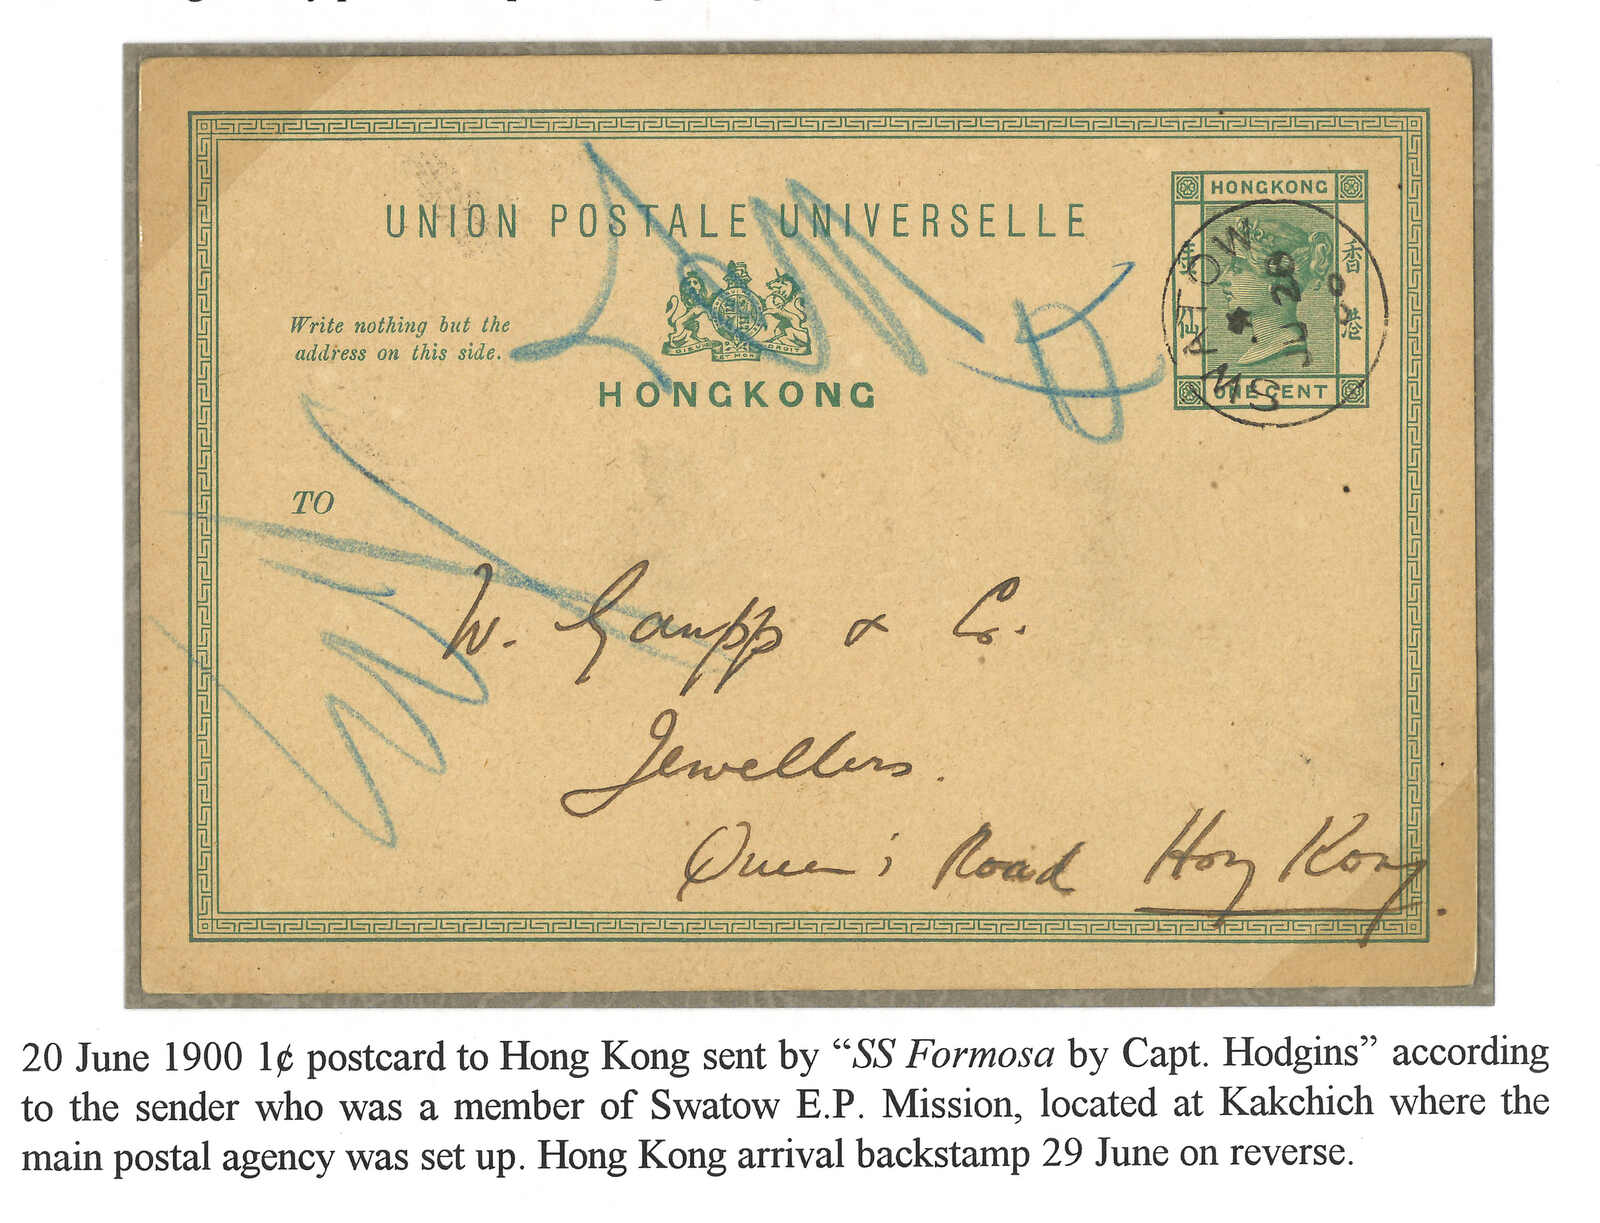 UNION POSTALE UNIVERSELLE
HONGKONG
香港
壹仙
ONE CENT
SWATOW
JU 20
Write nothing but the
address on this side.
DIEU ET MON DROIT
HONGKONG
TO
W. Gaupp & Co.
Jewellers.
Queen's Road Hong Kong
20 June 1900 1¢ postcard to Hong Kong sent by “SS Formosa by Capt. Hodgins” according
to the sender who was a member of Swatow E.P. Mission, located at Kakchich where the
main postal agency was set up. Hong Kong arrival backstamp 29 June on reverse.